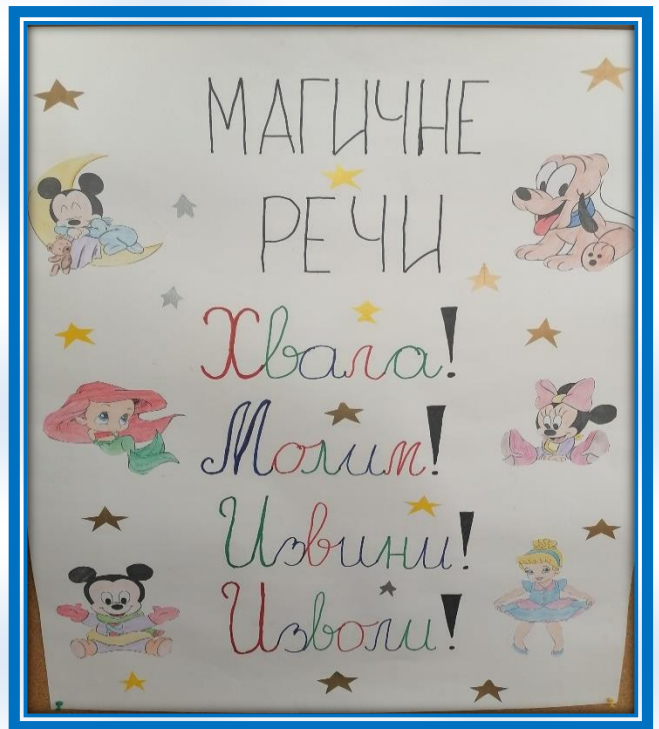 МАГИЧНЕ
РЕЧИ
Хвала!
Молим!
Извини!
Изволи!